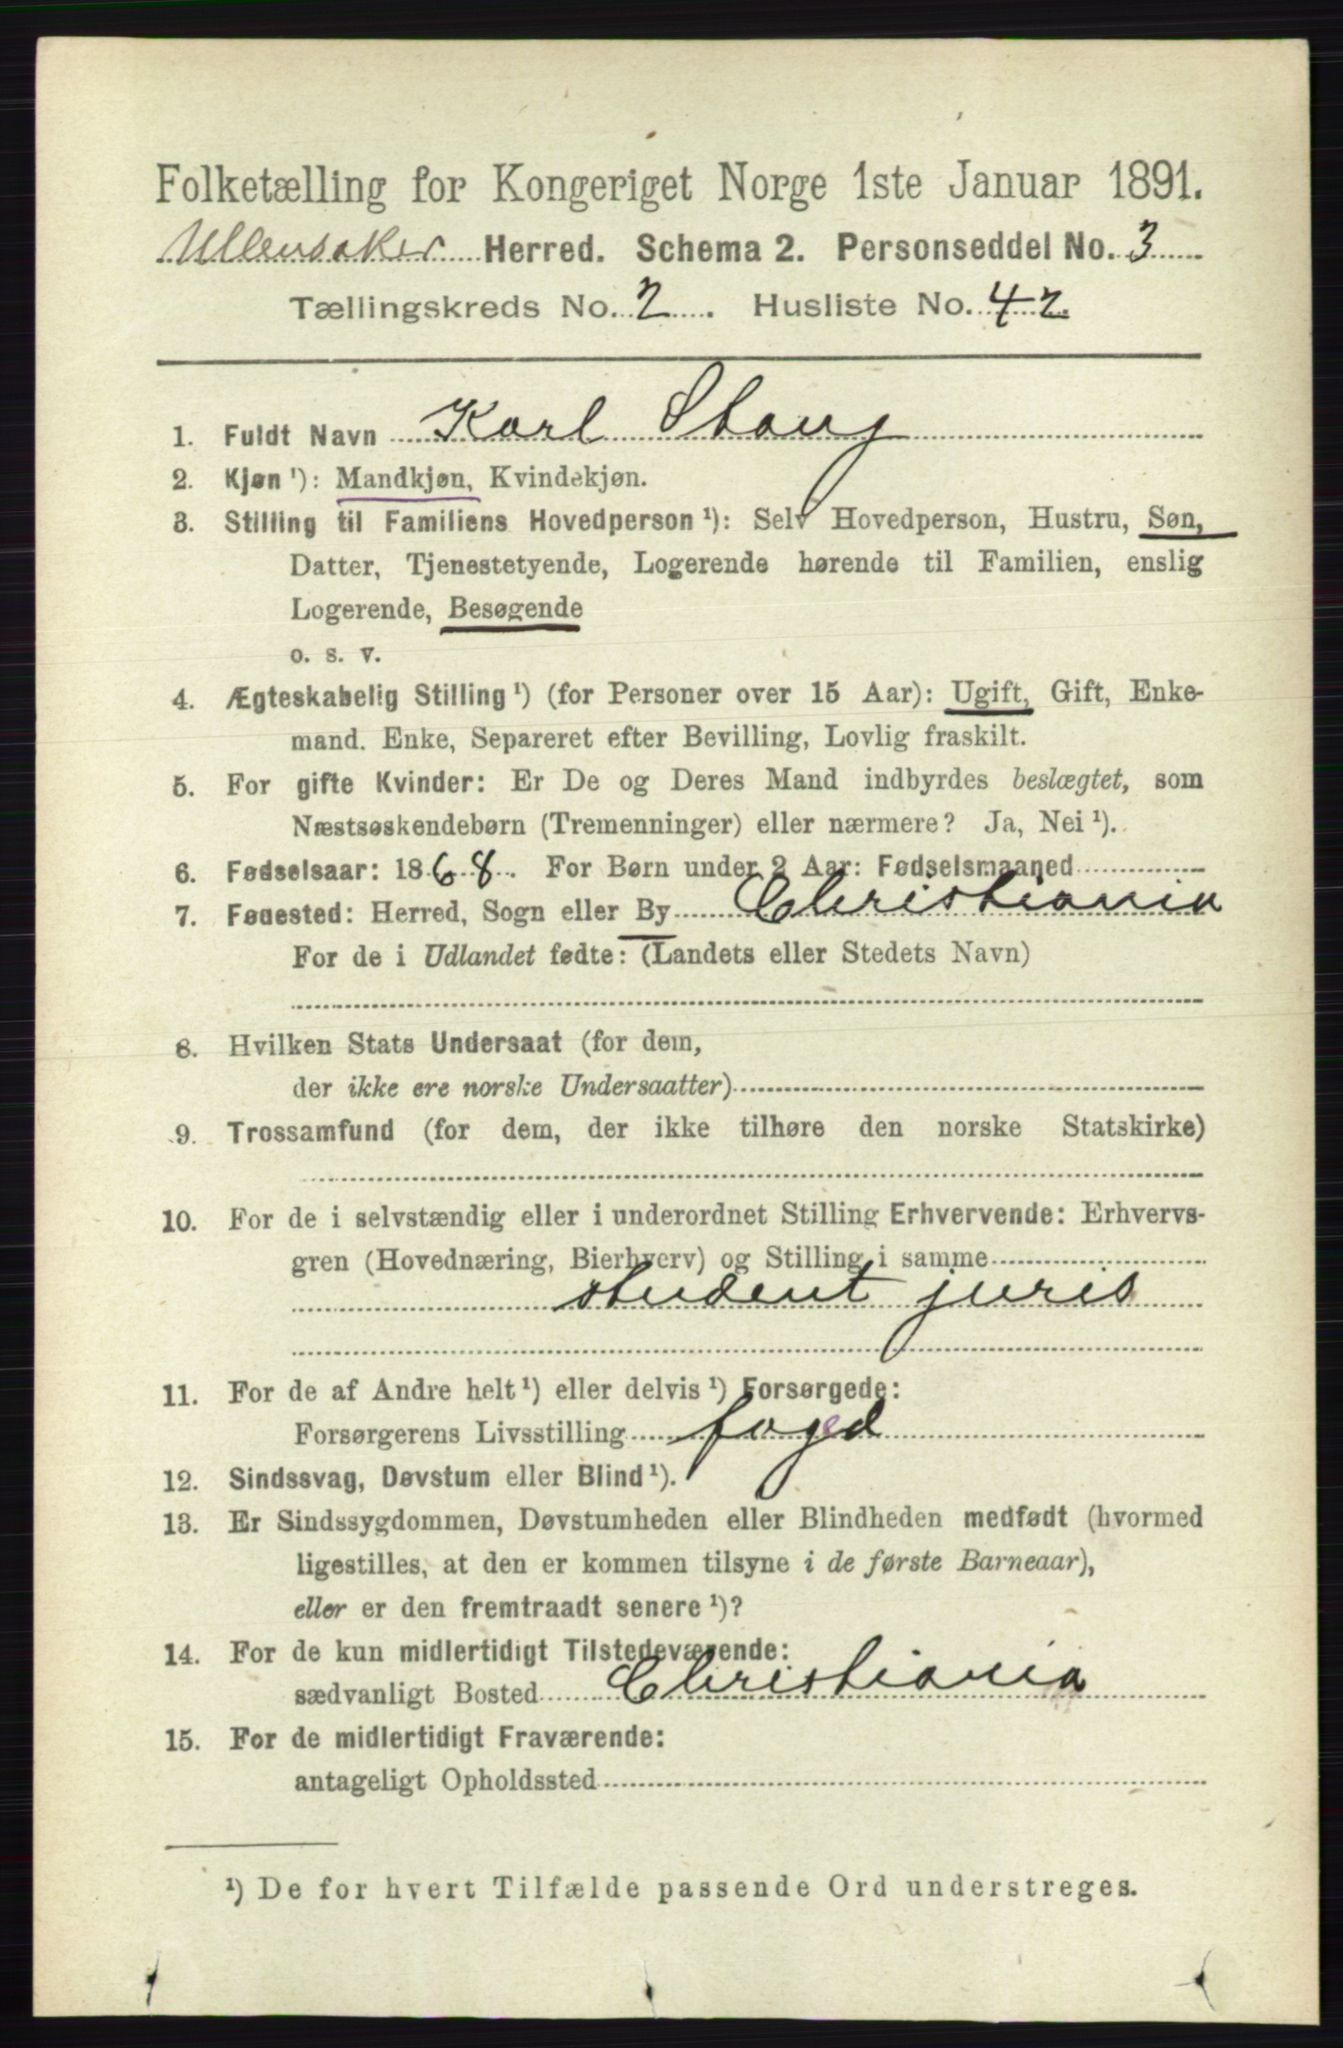 Folketælling for Kongeriget Norge 1ste Januar 1891.
Ullensaker Herred. Schema 2. Personseddel No. 3
Tællingskreds No. 2. Husliste No. 42.
1. Fuldt Navn Karl Stang
2. Kjøn ¹): Mandkjøn, Kvindekjøn.
3. Stilling til Familiens Hovedperson ¹): Selv Hovedperson, Hustru, Søn,
Datter, Tjenestetyende, Logerende hørende til Familien, enslig
Logerende, Besøgende
o. s. v.
4. Ægteskabelig Stilling ¹) (for Personer over 15 Aar): Ugift, Gift, Enke-
mand. Enke, Separeret efter Bevilling, Lovlig fraskilt.
5. For gifte Kvinder: Er De og Deres Mand indbyrdes beslægtet, som
Næstsøskendebørn (Tremenninger) eller nærmere? Ja, Nei ¹).
6. Fødselsaar: 1868. For Børn under 2 Aar: Fødselsmaaned
7. Fødested: Herred, Sogn eller By Christiania
For de i Udlandet fødte: (Landets eller Stedets Navn)
8. Hvilken Stats Undersaat (for dem,
der ikke ere norske Undersaatter)
9. Trossamfund (for dem, der ikke tilhøre den norske Statskirke)
10. For de i selvstændig eller i underordnet Stilling Erhvervende: Erhvervs-
gren (Hovednæring, Bierhverv) og Stilling i samme
student juris
11. For de af Andre helt ¹) eller delvis ¹) Forsørgede:
Forsørgerens Livsstilling foged
12. Sindssvag, Døvstum eller Blind ¹).
13. Er Sindssygdommen, Døvstumheden eller Blindheden medfødt (hvormed
ligestilles, at den er kommen tilsyne i de første Barneaar),
eller er den fremtraadt senere ¹)?
14. For de kun midlertidigt Tilstedeværende:
sædvanligt Bosted Christiania
15. For de midlertidigt Fraværende:
antageligt Opholdssted
¹) De for hvert Tilfælde passende Ord understreges.